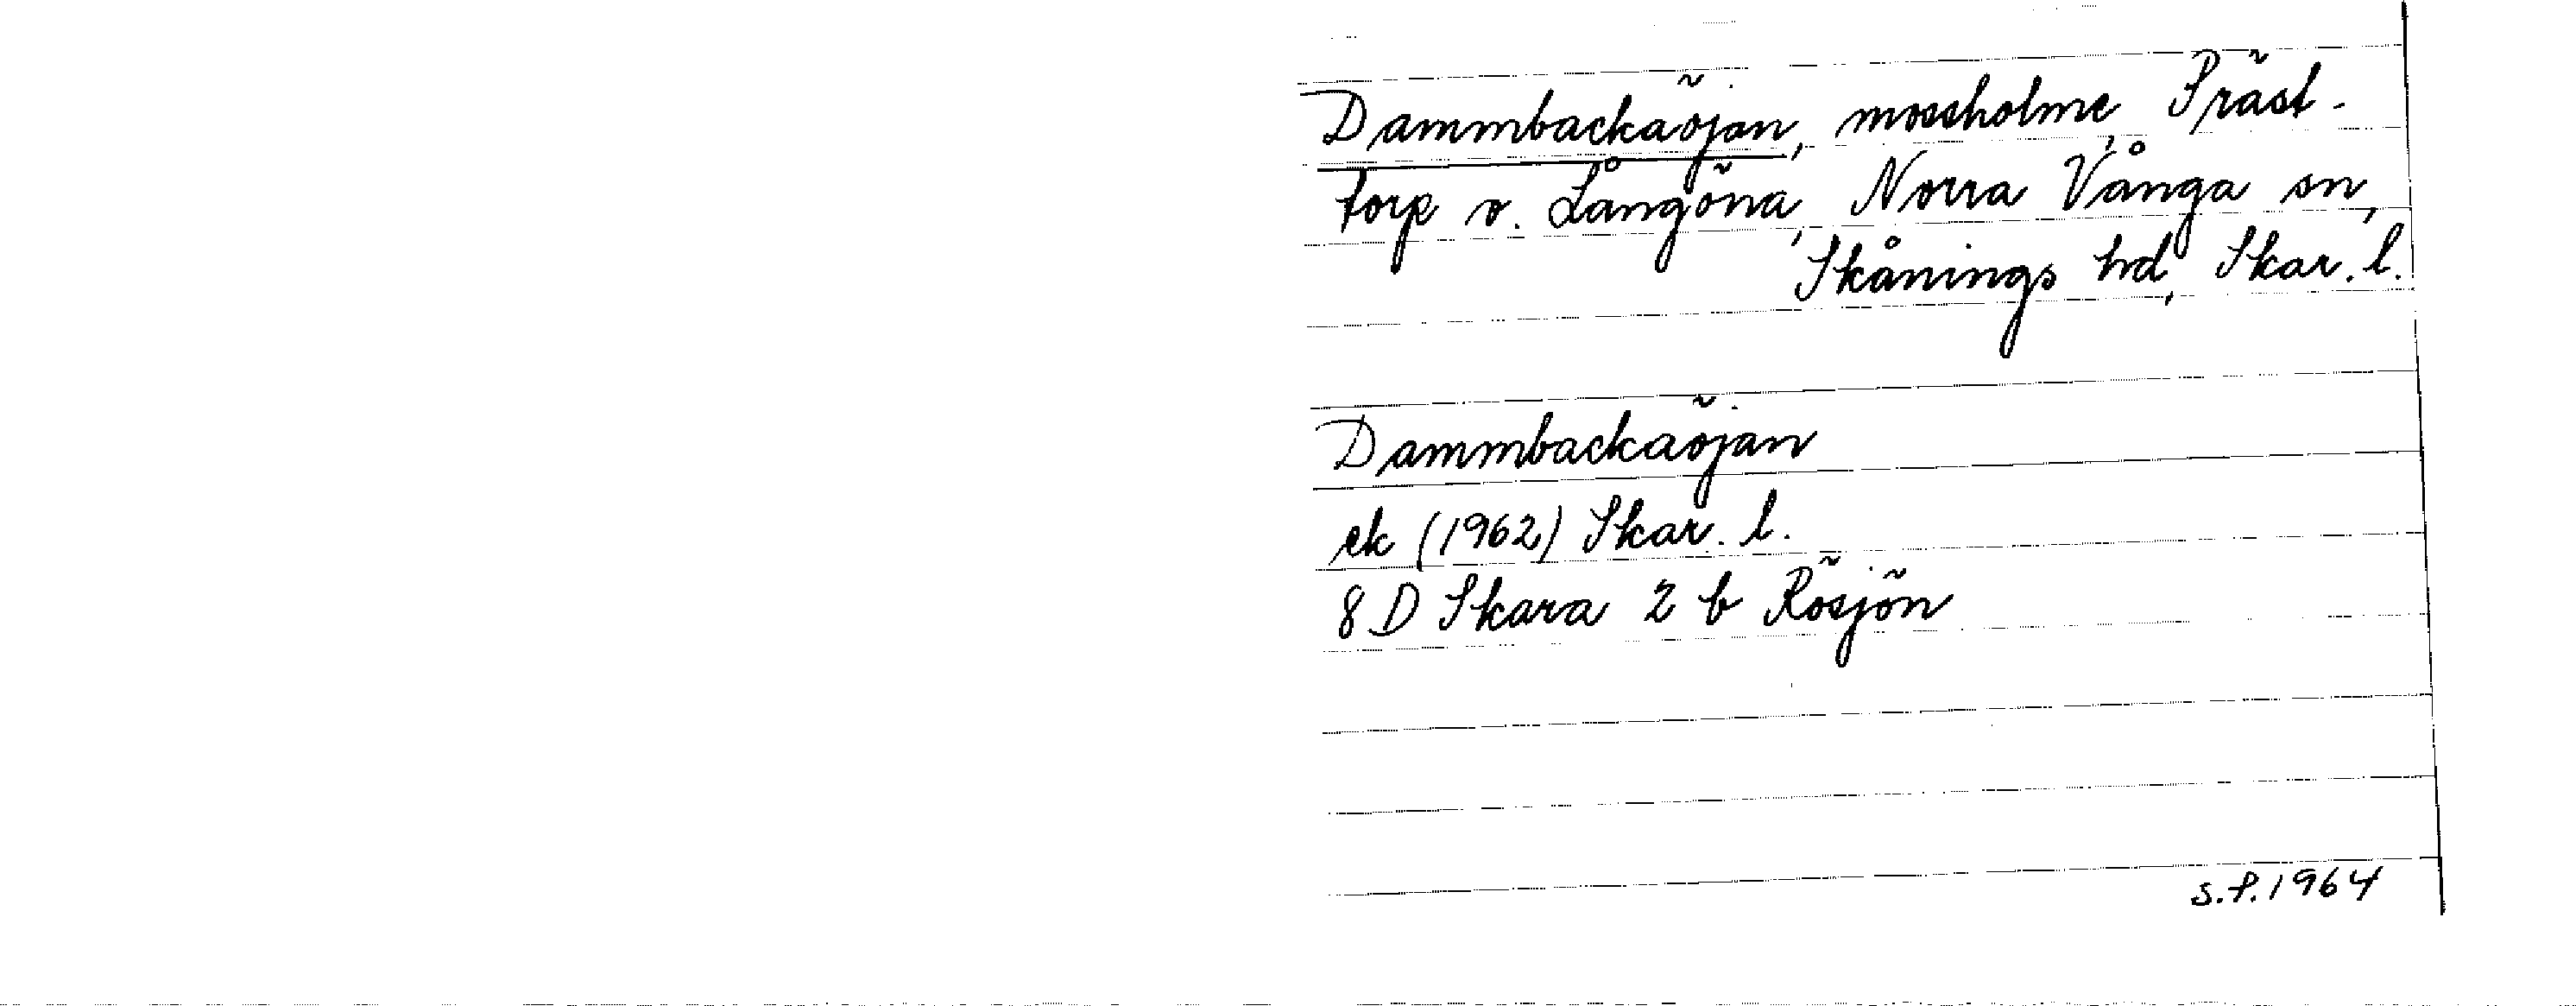 Dammbackaöjan, mossholme, Präst-
torp o. Långöna, Norra Vånga sn,
Skånings hd, Skar. l.
Dammbackaöjan
ek (1962) Skar. l.
8 D Skara 2 b Rösjön
S.P. 1964